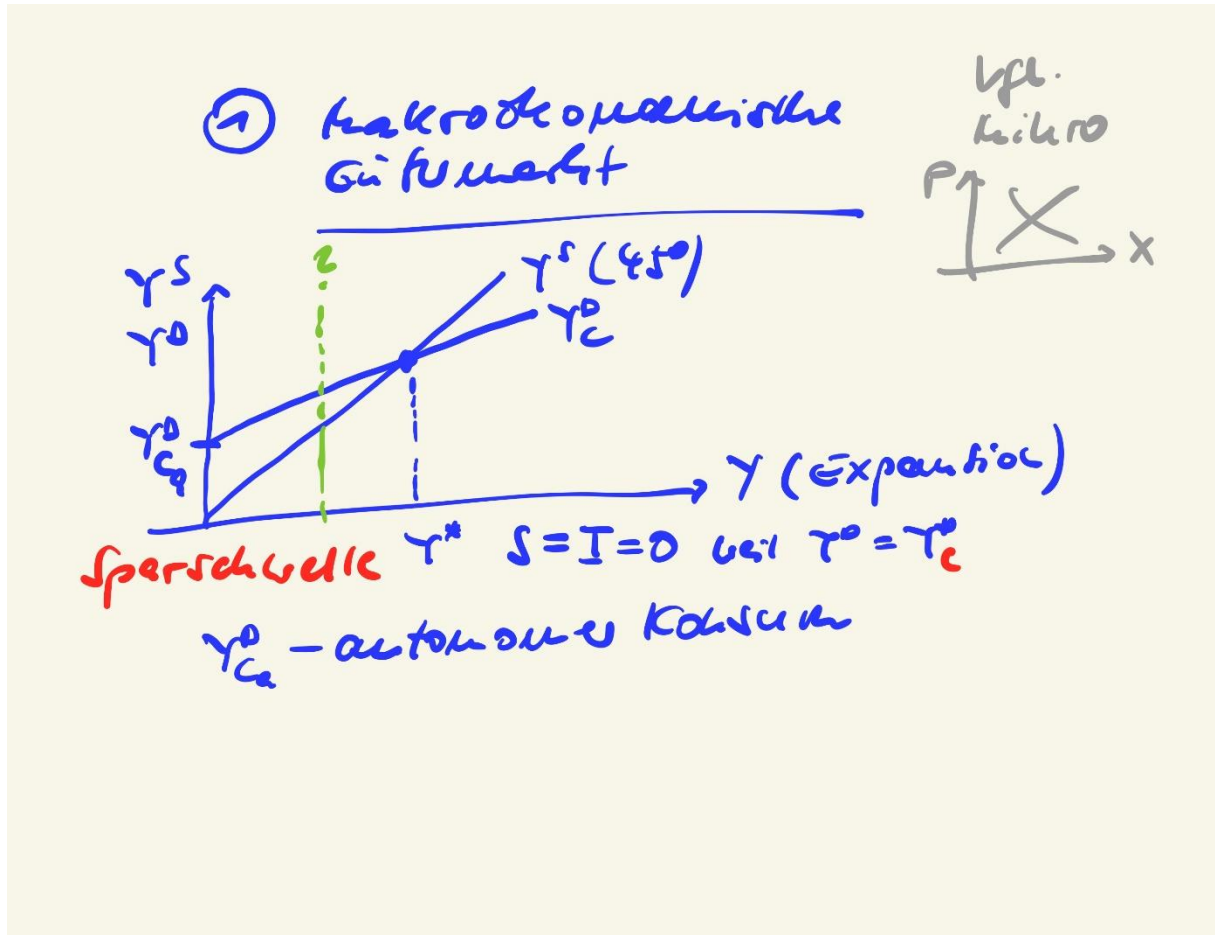 ① Makroökonomische
Gütermarkt
vgl.
Mikro
P
X
Y^S
Y^D
Y^S (45°)
Y^D_C
Y^D_{C_a}
Y (Expansion)
Sparschwelle Y* S = I = 0 weil Y^D = Y^D_C
Y^D_{C_a} – autonomer Konsum